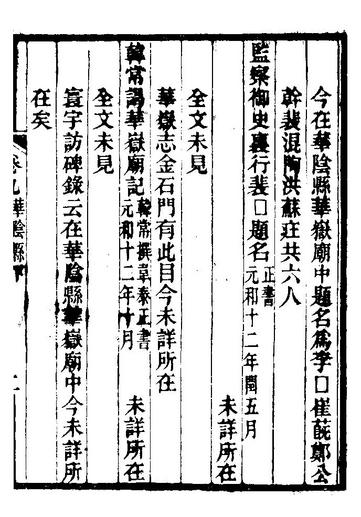 今在華陰縣華嶽廟中題名爲李□崔蕘鄭公
幹裴混陶洪蘇莊共六人
監察御史裏行裴□題名正書元和十二年閏五月
未詳所在
全文未見
華嶽志金石門有此目今未詳所在
韓常謁華嶽廟記韓常撰韋泰正書元和十二年十月
未詳所在
全文未見
寰宇訪碑錄云在華陰縣華嶽廟中今未詳所
在矣
卷九華陰縣